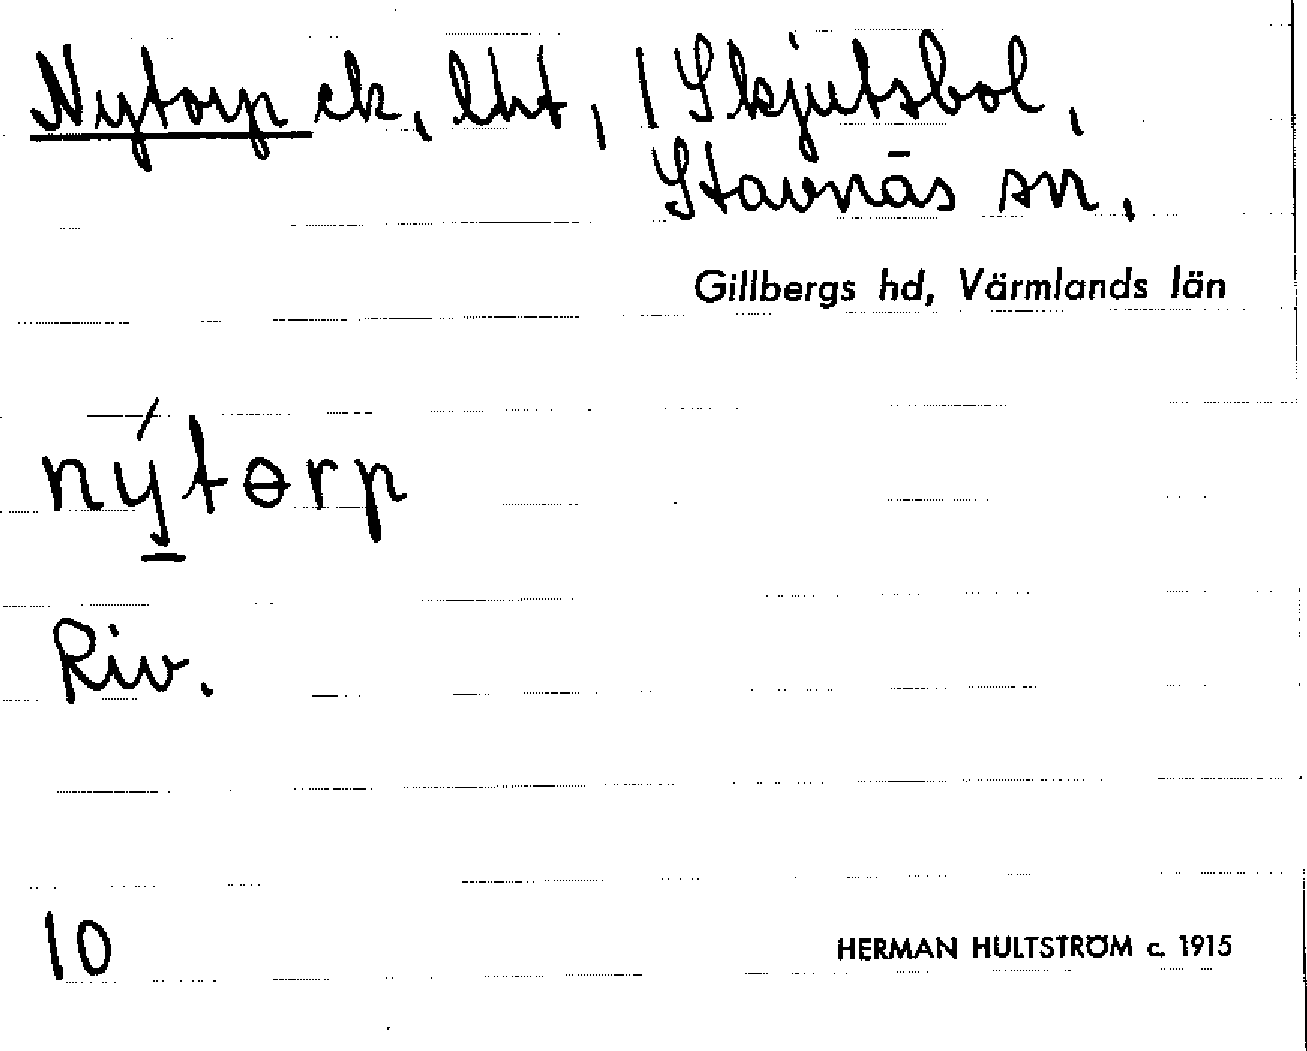 Nytorp ck, lht, 1 Skjutsbol,
Stavnäs sn.
Gillbergs hd, Värmlands län
nýtɵrp
Riv.
10
HERMAN HULTSTRÖM c. 1915